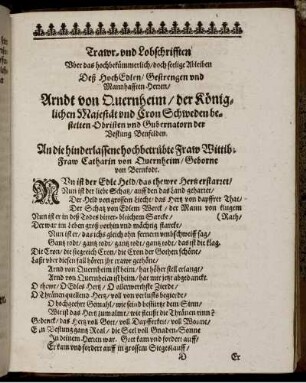 Trawr- und Lobschrifften
Vber das hochbekümmerlich/ doch seelige Ableiben
Deß HochEdlen/ Gestrengen und
Mannhafften Herren/
Arndt von Quernheim/ der König-
lichen Majestät und Cron Schweden be-
stelten Obristen und Gubernatorn der
Vestung Benfelden.
An die hinderlassene hochbetrübte Fraw Wittib/
Fraw Catharin von Quernheim/ Geborne
von
Nun ist der Edle Held/ das thewre Hertz erstarret/
Nun ist der liebe Schatz/ auff den das Land geharret/
Der Held von grossem Liecht/ das Hertz von dapffrer That/
Der Schatz von Edlem Wert/ der Mann von klugem
Nun ist er in deß Todes bitter-bleichem Sarcke/ (Rath/
Der war im leben groß vorhin und mächtig starcke/
Nun ist er/ das
Gantz todt/ gantz todt/ gantz todt/ gantz todt/ das ist die klag.
Die Cron/ die siegreich Cron/ die Cron der Gothen schöne/
Läßt über diesen fall hören ihr trawr gethöne/
Arnd von Quernheim ist heim/ hat höher stell erlangt/
Arnd von Quernheim ist heim/ hat mir jetz abgedanckt.
O thewr/ O Edles Hertz/ O allerwerthste Zierde/
O Thränen quellend Hertz/ voll von
O hochgeehrter Gemahl/ wie sind die Sinn/
Wie ist das Hertz zumalme/ wie fleußt die Thränen rinn?
Gedenck/ das Hertz voll Gott/ voll Dapfferkeit/ voll Wonne/
Ein Vestung gantz Real/ die Seel voll Gnaden-Sonne
In deinem Herren war. Gott kam und fordert auff/
Er kam und fordert auff in grossem Sieges lauff/
Er